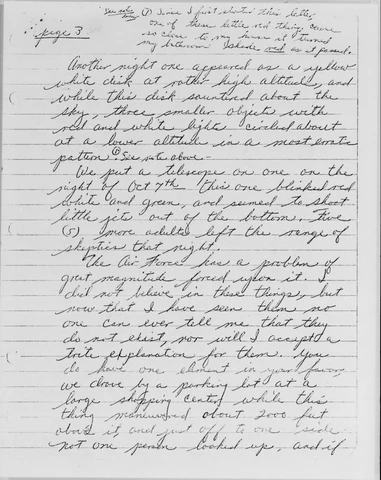 See note below
① Since I first started this letter,
one of these little red things came
page 3
so close to my house it turned
my bathroom shade red as it passed.
Another night one appeared as a yellow
white disk at rather high altitude, and
while this disk sauntered about the
sky, three smaller objects with
red and white lights circled about
at a lower altitude in a most erratic
pattern ① See note above -
We put a telescope on one on the
night of Oct 7th this one blinked red
white and green, and seemed to shoot
little jets out of the bottom. Five
(5), more adults left the range of
skeptics that night.
The Air Force has a problem of
great magnitude forced upon it. I
did not believe in these things, but
now that I have seen them no
one can ever tell me that they
do not exist, nor will I accept a
trite explanation for them. You
do have one element in your favor,
we drove by a parking lot at a
large shopping center while this
thing maneuvered about 2000 feet
above it, and just off to one side
not one person looked up, and if